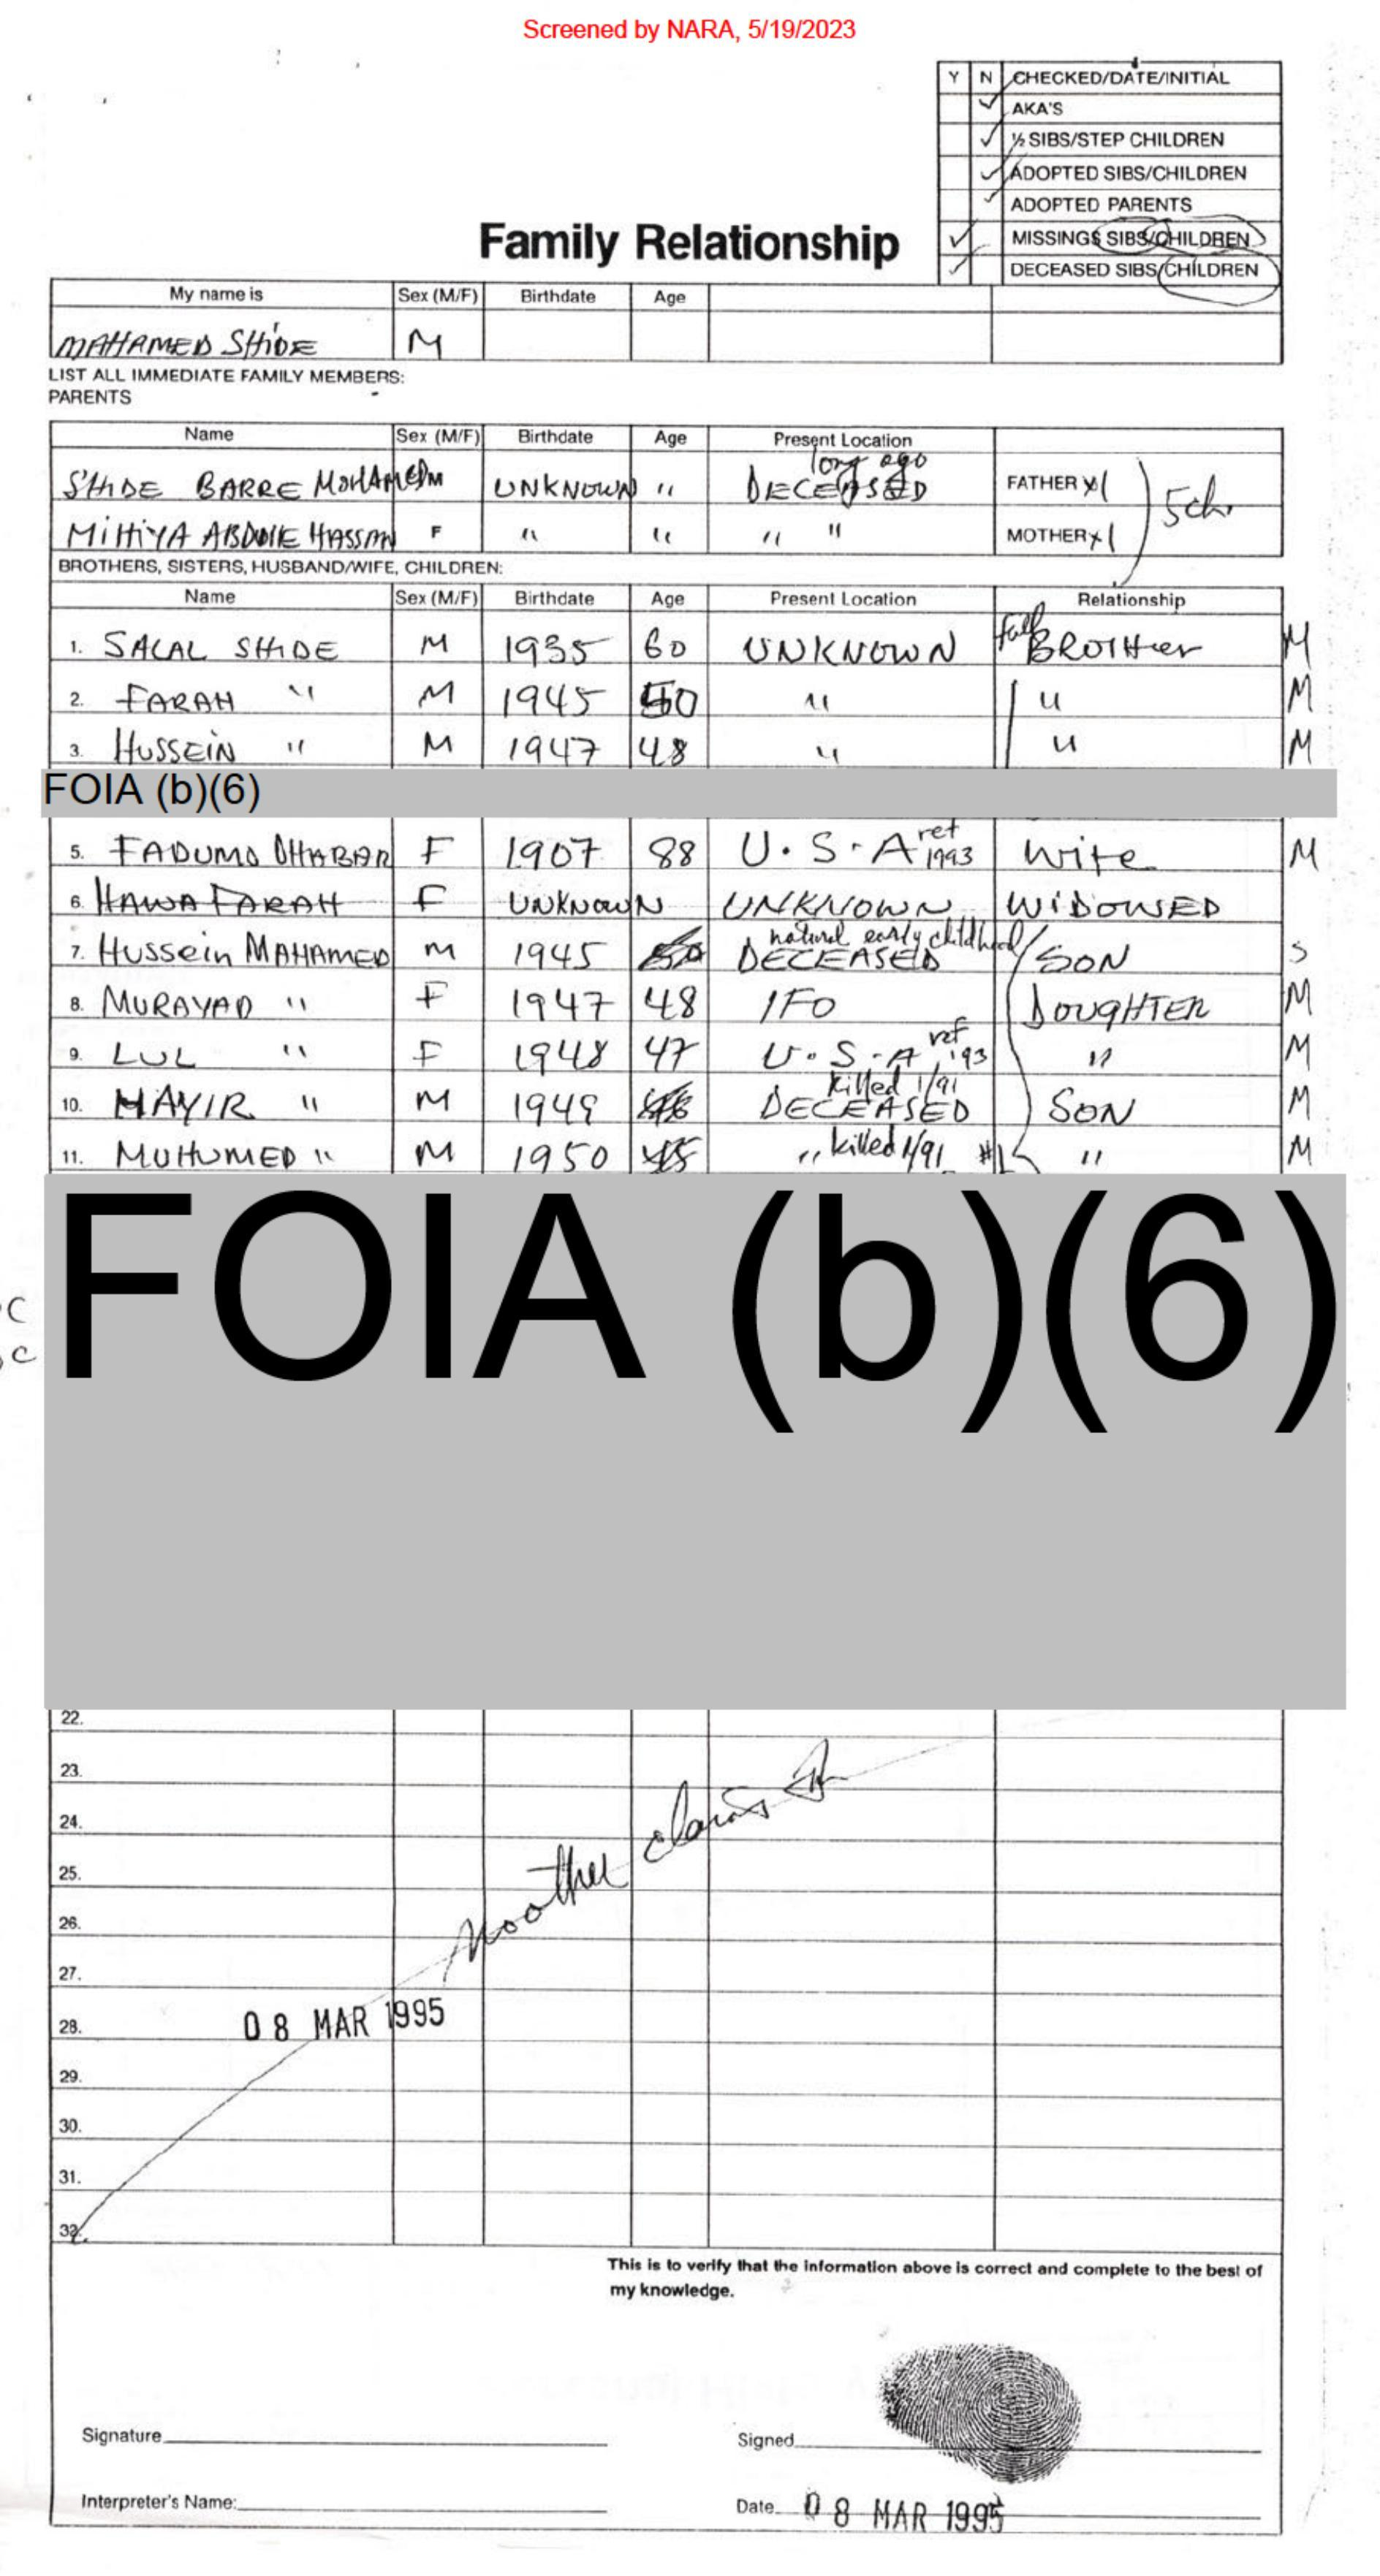 Screened by NARA, 5/19/2023
Y N CHECKED/DATE/INITIAL
✓ AKA'S
✓ ½ SIBS/STEP CHILDREN
✓ ADOPTED SIBS/CHILDREN
✓ ADOPTED PARENTS
✓ MISSINGS SIBS/CHILDREN
✓ DECEASED SIBS/CHILDREN
Family Relationship
My name is Sex (M/F) Birthdate Age
MAHAMED SHIDE M
LIST ALL IMMEDIATE FAMILY MEMBERS:
PARENTS
Name Sex (M/F) Birthdate Age Present Location
long ago
SHIDE BARRE MOHAMED M UNKNOWN " DECEASED FATHER x1
5ch.
MIHIYA ABDULLE HASSAN F " " " " MOTHER x1
BROTHERS, SISTERS, HUSBAND/WIFE, CHILDREN:
Name Sex (M/F) Birthdate Age Present Location Relationship
1. SALAL SHIDE M 1935 60 UNKNOWN full BROTHER M
2. FARAH " M 1945 50 " " M
3. HUSSEIN " M 1947 48 " " M
FOIA (b)(6)
5. FADUMO DHABAR F 1907 88 U.S.A ref 1993 Wife M
6. HAWA FARAH F UNKNOWN UNKNOWN WIDOWSED
natural early childhood
7. Hussein MAHAMED M 1945 DECEASED SON S
8. MURAYAD " F 1947 48 IFO DOUGHTER M
9. LUL " F 1948 47 U.S.A ref '93 " M
killed 1/91
10. HAYIR " M 1949 DECEASED SON M
11. MUHUMED " M 1950 45 " killed 1/91 #1 " M
FOIA (b)(6)
22.
23.
24.
25.
26.
27.
No other claims
08 MAR 1995
28.
29.
30.
31.
32.
This is to verify that the information above is correct and complete to the best of
my knowledge.
Signature Signed
Interpreter's Name: Date 08 MAR 1995